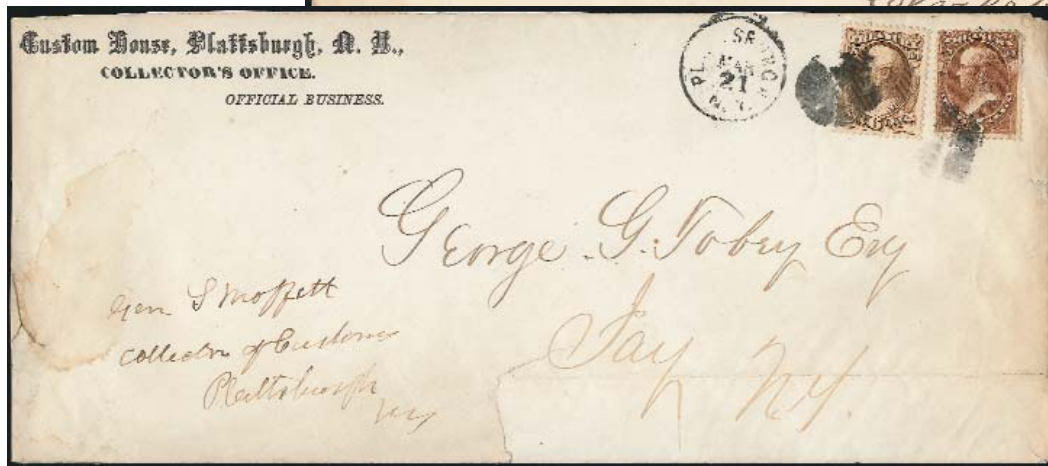 Custom House, Plattsburgh, N. Y.,
COLLECTOR'S OFFICE.
OFFICIAL BUSINESS.
MAR
21
N.Y.
George. G. Tobey Esq
Jay
NY.
Gen S Moffett
Collector of Customs
Plattsburgh
NY